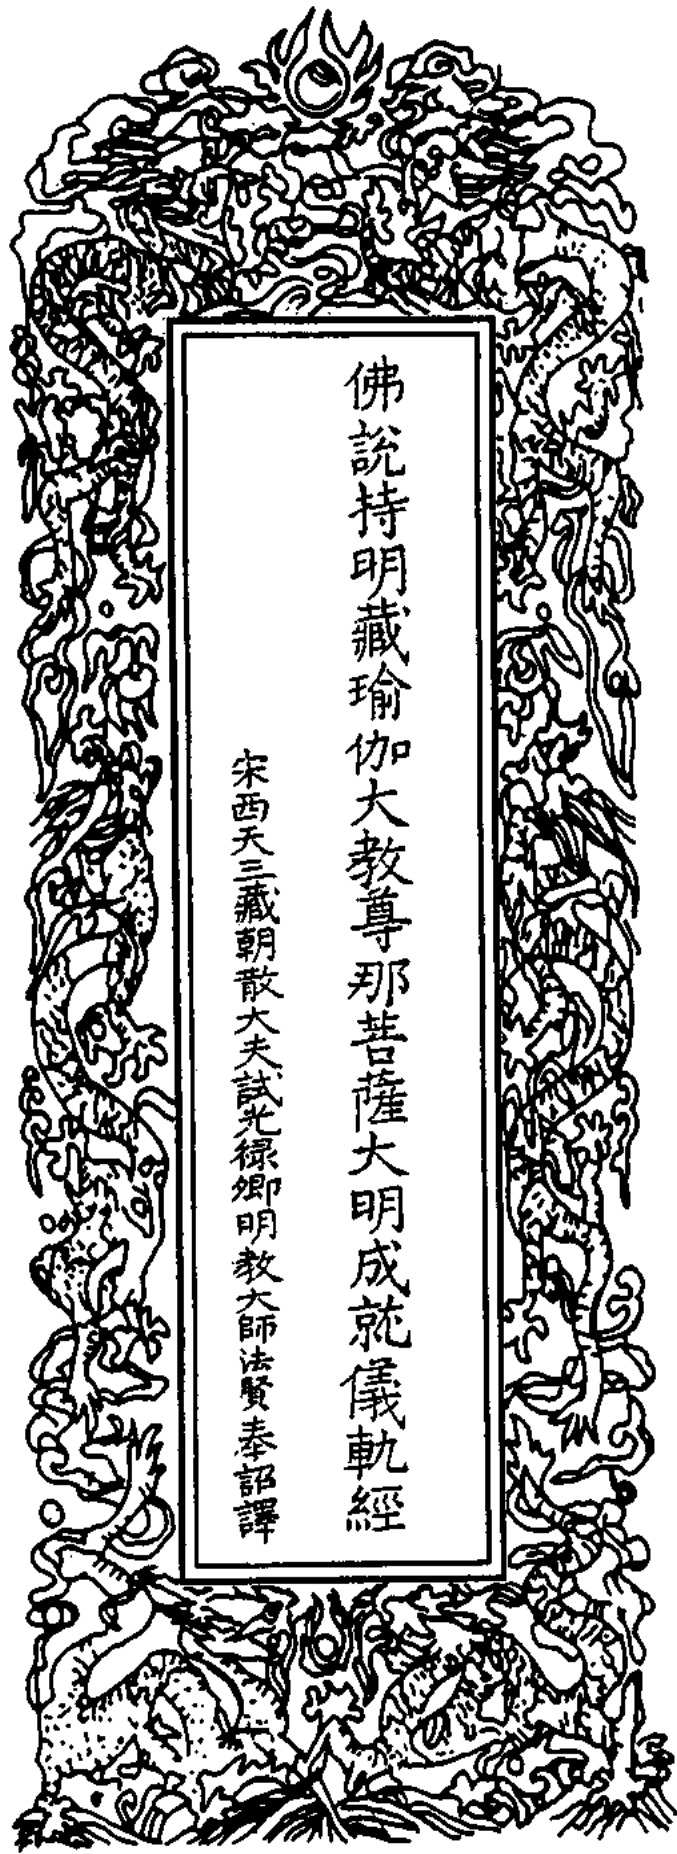 佛說持明藏瑜伽大教尊那菩薩大明成就儀軌經
宋西天三藏朝散大夫試光祿卿明教大師法賢奉詔譯